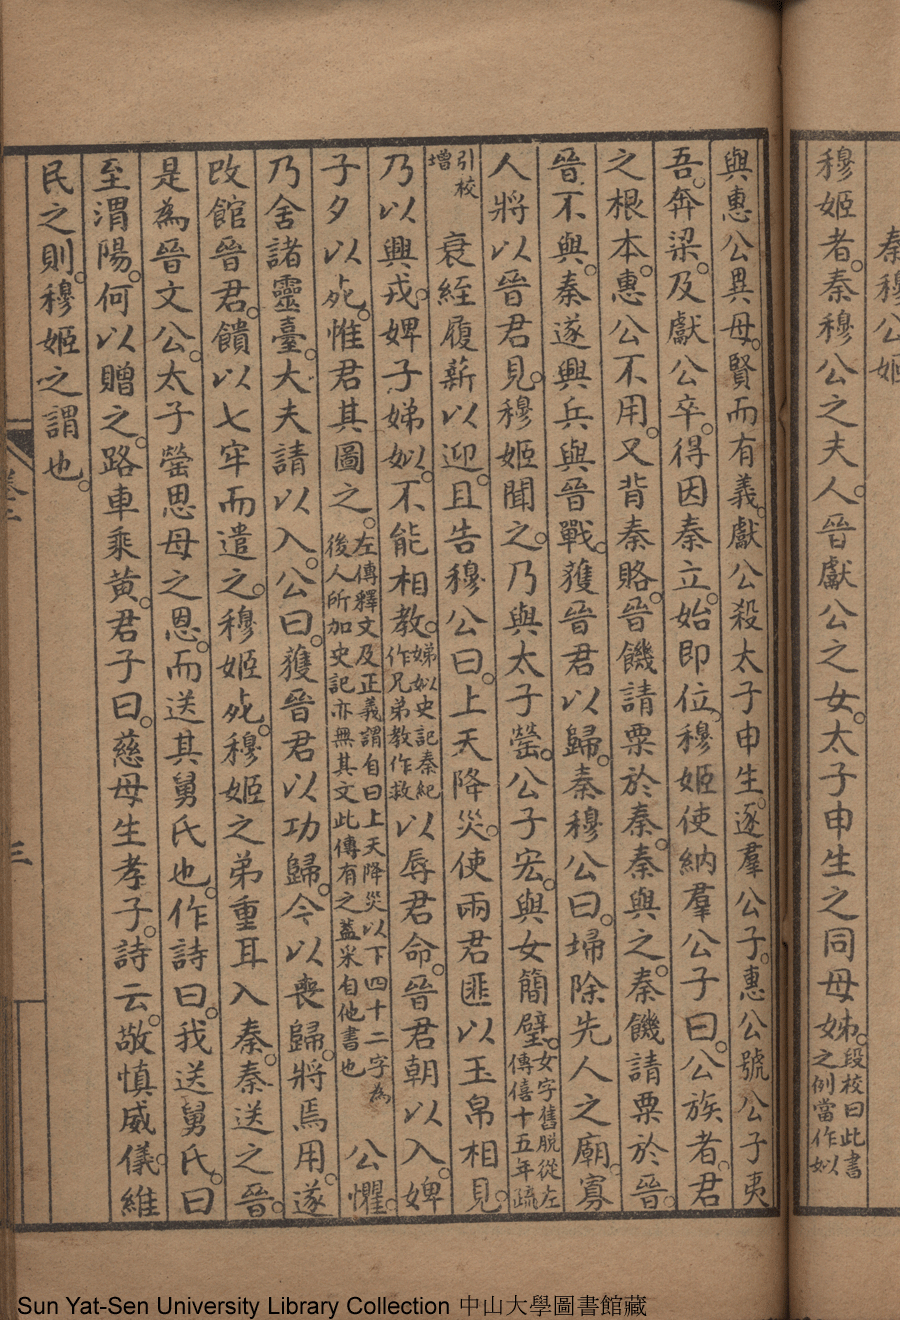 秦穆公姬
穆姬者秦穆公之夫人晉獻公之女太子申生之同母姊段校曰此書之例當作姒
與惠公異母賢而有義獻公殺太子申生逐羣公子惠公號公子夷
吾奔梁及獻公卒得因秦立始即位穆姬使納羣公子曰公族者君
之根本惠公不用又背秦賂晉饑請粟於秦秦與之秦饑請粟於晉
晉不與秦遂興兵與晉戰獲晉君以歸秦穆公曰埽除先人之廟寡
人將以晉君見穆姬聞之乃與太子罃公子宏與女簡璧女字舊脫從左傳僖十五年疏
引校增衰絰履薪以迎且告穆公曰上天降災使兩君匪以玉帛相見
乃以興戎婢子娣姒不能相教娣姒史記秦紀作兄弟教作救以辱君命晉君朝以入婢
子夕以死惟君其圖之左傳釋文及正義謂自曰上天降災以下四十二字為後人所加史記亦無其文此傳有之蓋采自他書也公懼
乃舍諸靈臺大夫請以入公曰獲晉君以功歸今以喪歸將焉用遂
改館晉君饋以七牢而遣之穆姬死穆姬之弟重耳入秦秦送之晉
是為晉文公太子罃思母之恩而送其舅氏也作詩曰我送舅氏曰
至渭陽何以贈之路車乘黃君子曰慈母生孝子詩云敬慎威儀維
民之則穆姬之謂也
三
Sun Yat-Sen University Library Collection 中山大學圖書館藏